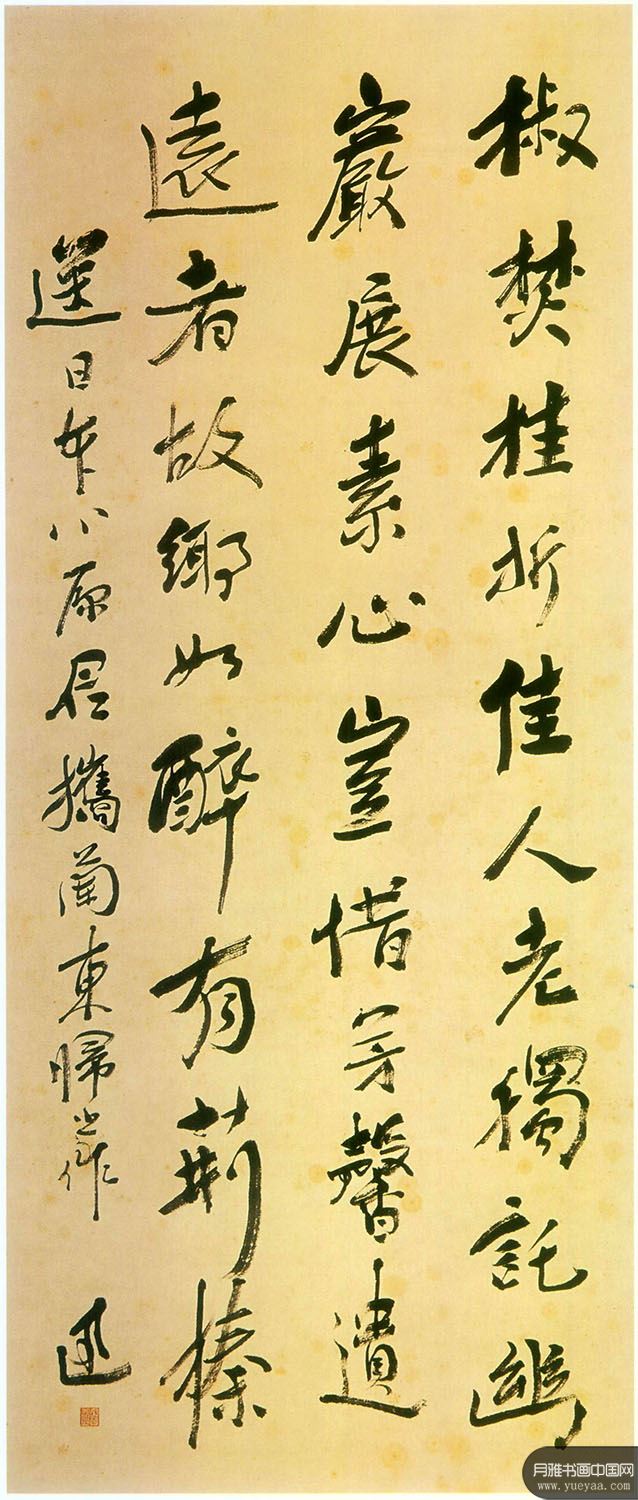 椒焚桂折佳人老獨託幽
巖展素心豈惜芳馨遺
遠者故鄉如醉有荊榛
送日本小原君攜蘭東歸作
月雅书画中国网
www.yueyaa.com